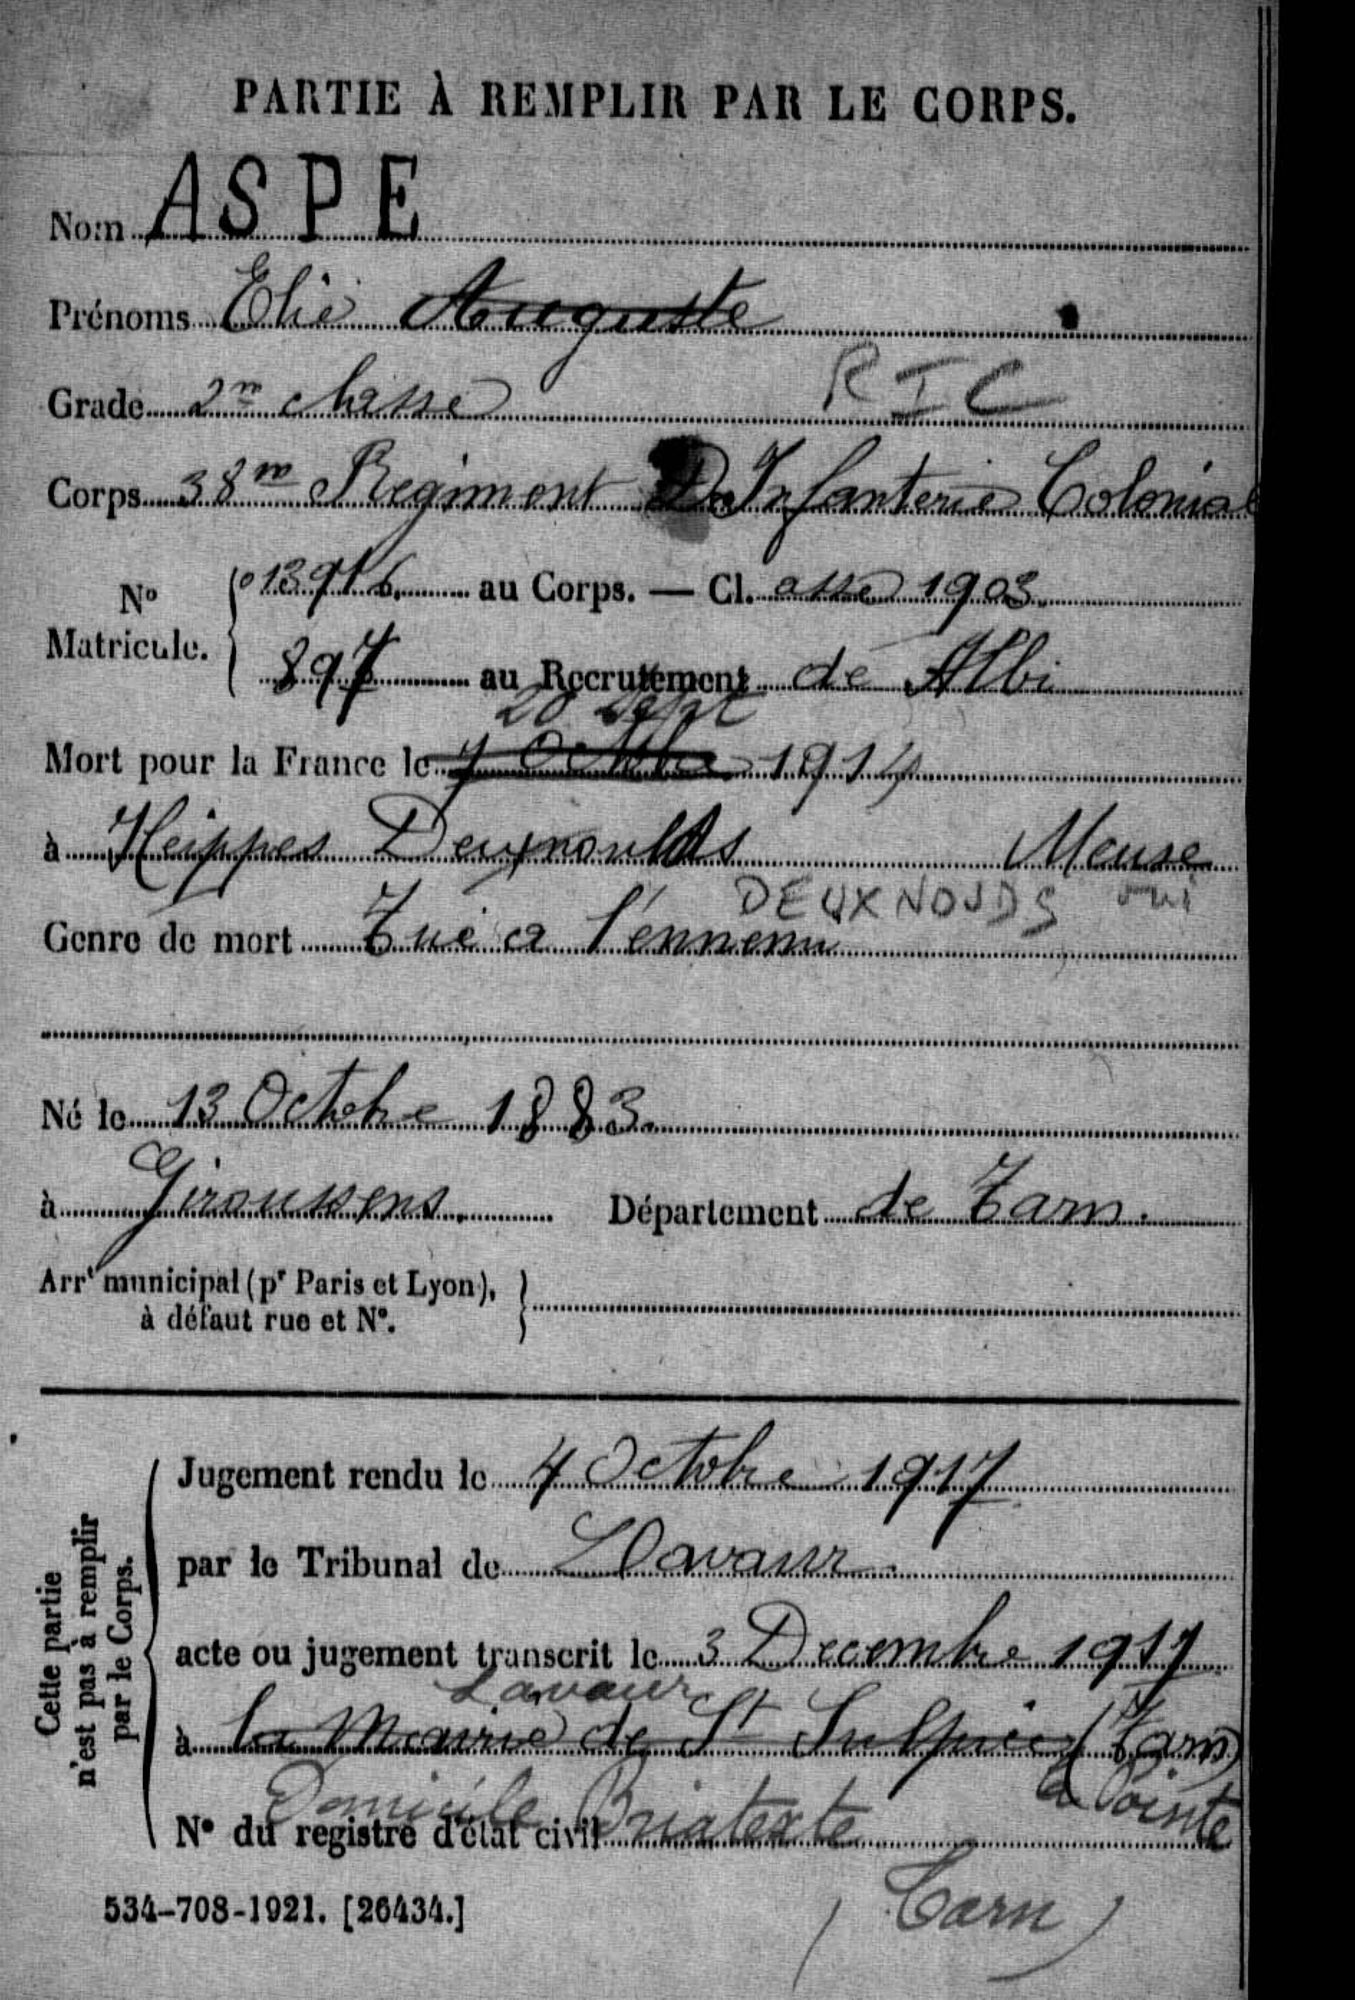 PARTIE À REMPLIR PAR LE CORPS.
Nom ASPE
Prénoms Elie Auguste
Grade 2m classe
RIC
Corps 38m Regiment D'Infanterie Colonial
No Matricule. 13916 au Corps. — Cl. asse 1903
897 au Recrutement de Albi
20 Sept
Mort pour la France le 7 Octobre 1914
à Heippes Deuxnoulds Meuse
DEUXNOUDS
Genre de mort Tué a l'ennemi
Né le 13 Octobre 1883.
à Giroussens. Département de Tarn.
Arrt municipal (pr Paris et Lyon), à défaut rue et No.
Cette partie n'est pas à remplir par le Corps.
Jugement rendu le 4 Octobre 1917
par le Tribunal de Lavaur.
acte ou jugement transcrit le 3 Decembre 1917
Lavaur
à la Mairie de St Sulpice (Tarn)
la Pointe
Domicile Briatexte
No du registre d'état civil
(Tarn)
534-708-1921. [26434.]